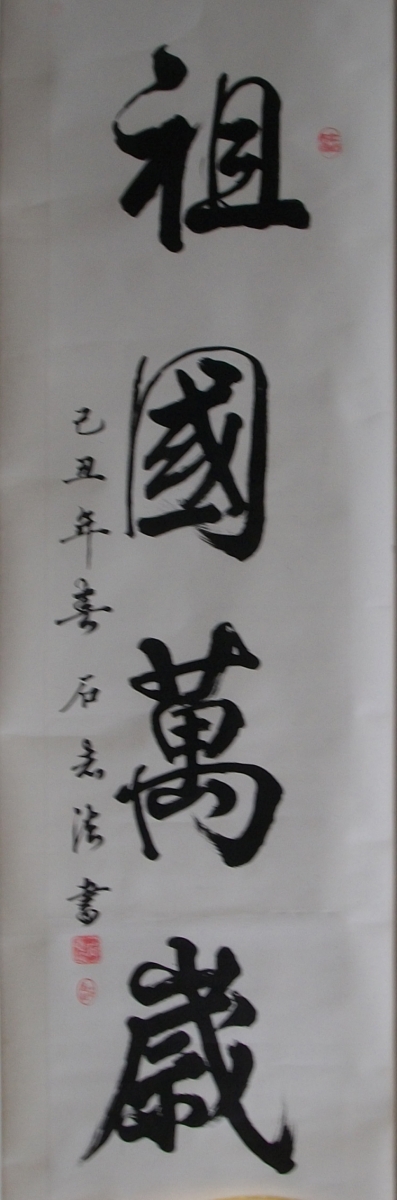 祖國萬歲
己丑年春石志法書